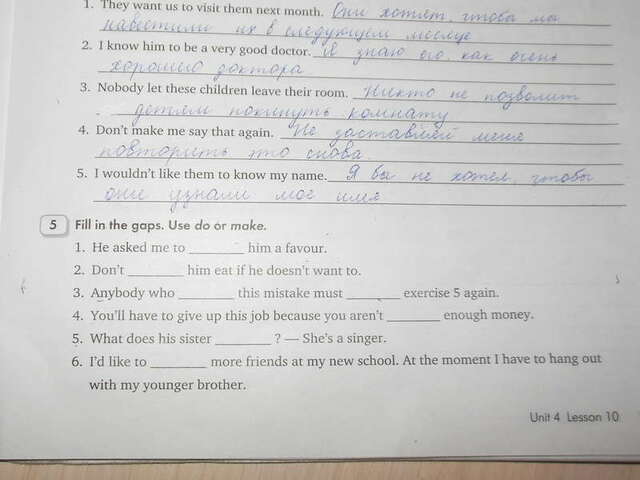 1. They want us to visit them next month. Они хотят, чтобы мы
навестили их в следующем месяце
2. I know him to be a very good doctor. Я знаю его, как очень
хорошего доктора.
3. Nobody let these children leave their room. Никто не позволит
детям покинуть комнату
4. Don't make me say that again. Не заставляй меня
повторить это снова.
5. I wouldn't like them to know my name. Я бы не хотел, чтобы
они узнали мое имя
5 Fill in the gaps. Use do or make.
1. He asked me to ________ him a favour.
2. Don't ________ him eat if he doesn't want to.
3. Anybody who ________ this mistake must ________ exercise 5 again.
4. You'll have to give up this job because you aren't ________ enough money.
5. What does his sister ________ ? — She's a singer.
6. I'd like to ________ more friends at my new school. At the moment I have to hang out
with my younger brother.
Unit 4 Lesson 10